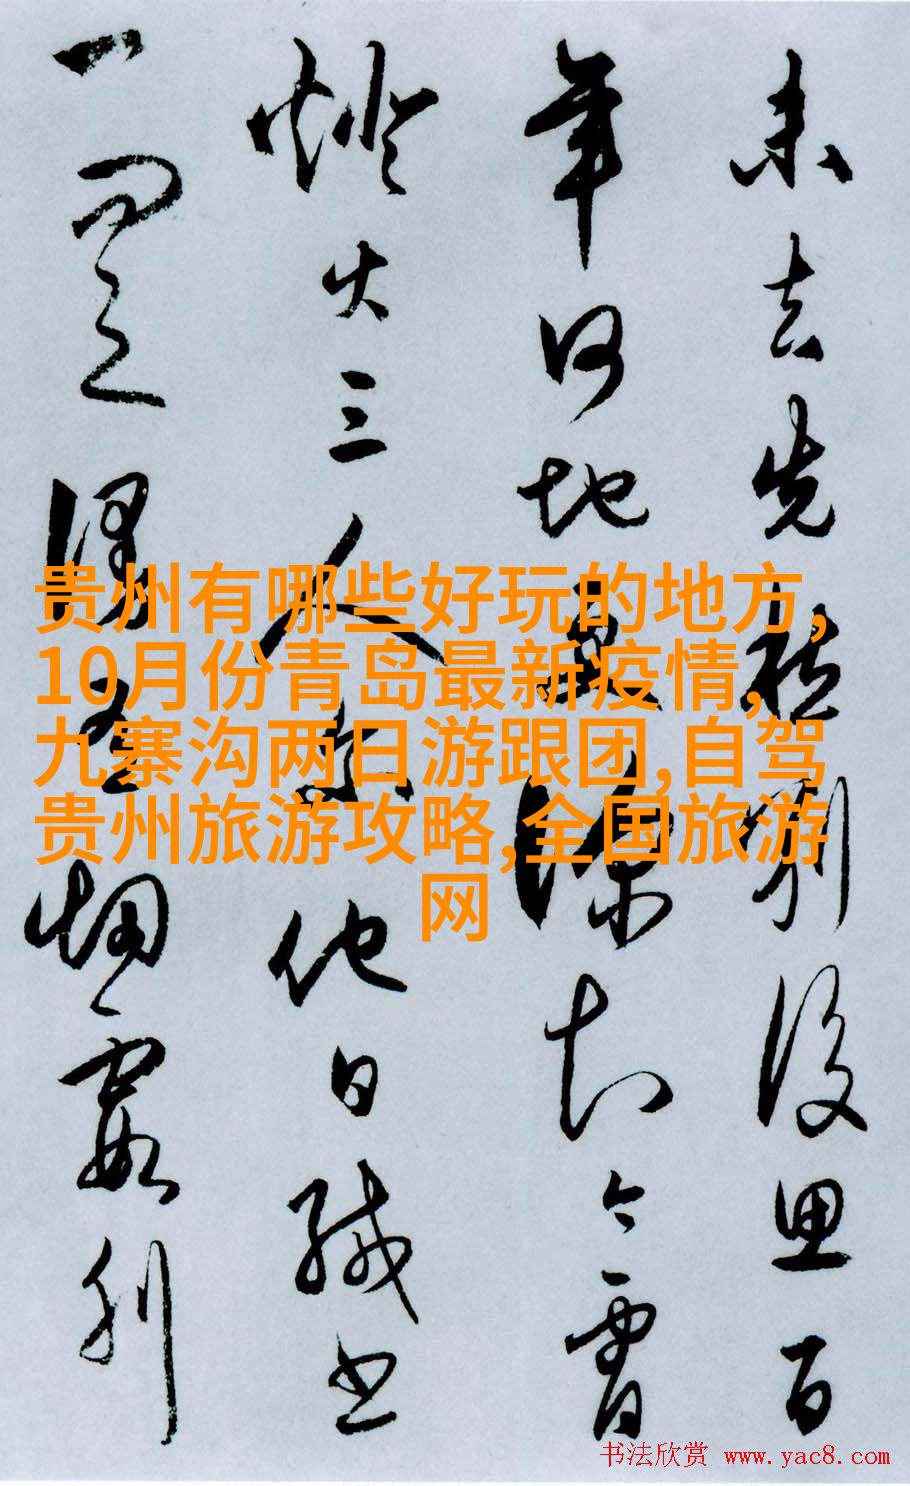 贵州有哪些好玩的地方,
10月份青岛最新疫情,
九寨沟两日游跟团,自驾
贵州旅游攻略,全国旅游
网
未去先愁别后思百
年何地更深知今霄
灯火三人尔他日缄书
一罗
烟霞列
书法欣赏 www.yac8.com